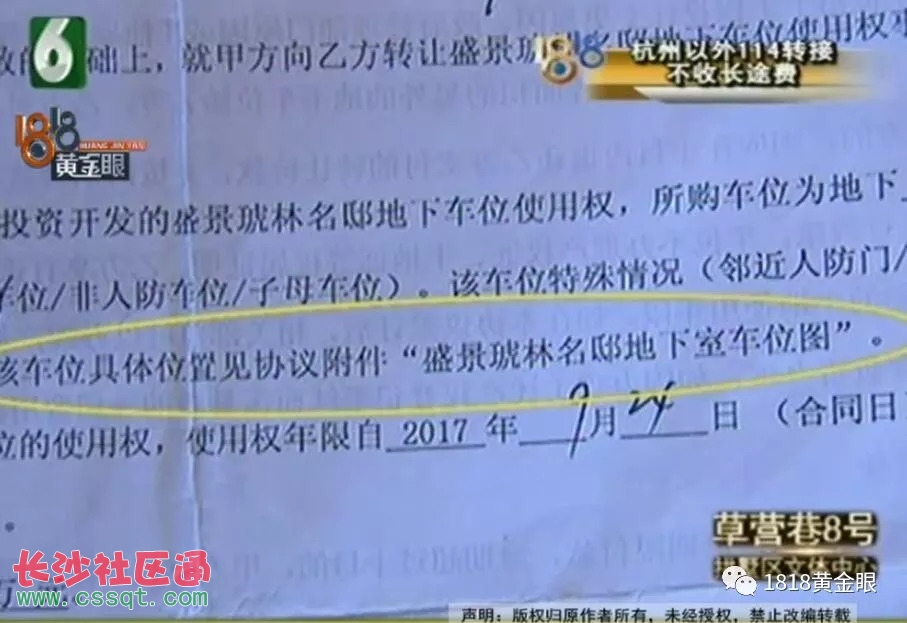 6
础上，就甲方向乙方转让盛景琥林名邸地下车位使用权
1818
杭州以外114转接
不收长途费
1818
HUANG JIN YAN
黄金眼
投资开发的盛景琥林名邸地下车位使用权，所购车位为地下
位/非人防车位/子母车位）。该车位特殊情况（邻近人防门/
该车位具体位置见协议附件“盛景琥林名邸地下室车位图”。
位的使用权，使用权年限自 2017 年 9月 24 日 （合同日
。
草营巷8号
长沙社区通
www.cssqt.com
1818黄金眼
声明：版权归原作者所有，未经授权，禁止改编转载